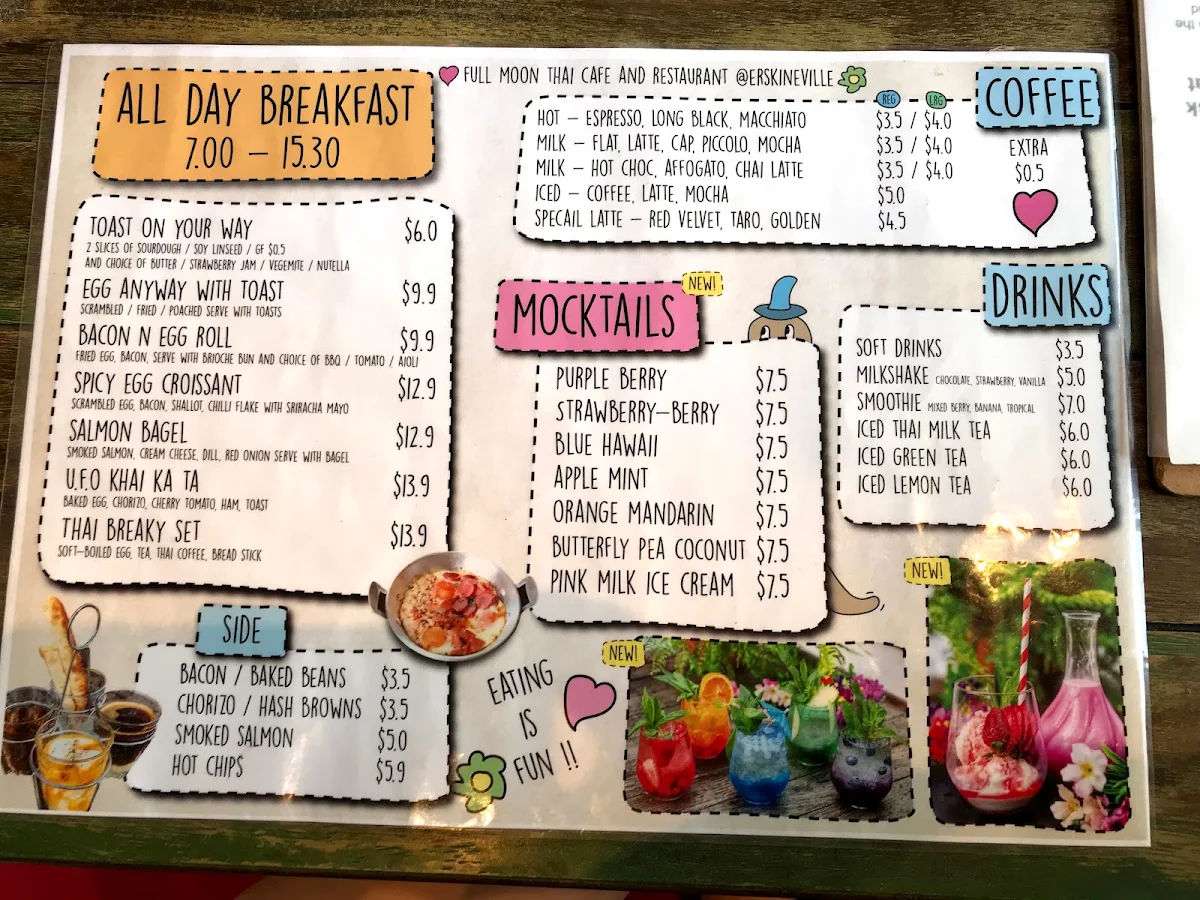 FULL MOON THAI CAFE AND RESTAURANT @ERSKINEVILLE
ALL DAY BREAKFAST
7.00 – 15.30
TOAST ON YOUR WAY $6.0
2 SLICES OF SOURDOUGH / SOY LINSEED / GF $0.5
AND CHOICE OF BUTTER / STRAWBERRY JAM / VEGEMITE / NUTELLA
EGG ANYWAY WITH TOAST $9.9
SCRAMBLED / FRIED / POACHED SERVE WITH TOASTS
BACON N EGG ROLL $9.9
FRIED EGG, BACON, SERVE WITH BRIOCHE BUN AND CHOICE OF BBQ / TOMATO / AIOLI
SPICY EGG CROISSANT $12.9
SCRAMBLED EGG, BACON, SHALLOT, CHILLI FLAKE WITH SRIRACHA MAYO
SALMON BAGEL $12.9
SMOKED SALMON, CREAM CHEESE, DILL, RED ONION SERVE WITH BAGEL
U.F.O KHAI KA TA $13.9
BAKED EGG, CHORIZO, CHERRY TOMATO, HAM, TOAST
THAI BREAKY SET $13.9
SOFT-BOILED EGG, TEA, THAI COFFEE, BREAD STICK
SIDE
BACON / BAKED BEANS $3.5
CHORIZO / HASH BROWNS $3.5
SMOKED SALMON $5.0
HOT CHIPS $5.9
COFFEE
REG LRG
HOT – ESPRESSO, LONG BLACK, MACCHIATO $3.5 / $4.0
MILK – FLAT, LATTE, CAP, PICCOLO, MOCHA $3.5 / $4.0
MILK – HOT CHOC, AFFOGATO, CHAI LATTE $3.5 / $4.0
ICED – COFFEE, LATTE, MOCHA $5.0
SPECAIL LATTE – RED VELVET, TARO, GOLDEN $4.5
EXTRA
$0.5
MOCKTAILS
NEW!
PURPLE BERRY $7.5
STRAWBERRY-BERRY $7.5
BLUE HAWAII $7.5
APPLE MINT $7.5
ORANGE MANDARIN $7.5
BUTTERFLY PEA COCONUT $7.5
PINK MILK ICE CREAM $7.5
DRINKS
SOFT DRINKS $3.5
MILKSHAKE CHOCOLATE, STRAWBERRY, VANILLA $5.0
SMOOTHIE MIXED BERRY, BANANA, TROPICAL $7.0
ICED THAI MILK TEA $6.0
ICED GREEN TEA $6.0
ICED LEMON TEA $6.0
EATING
IS
FUN !!
NEW!
NEW!